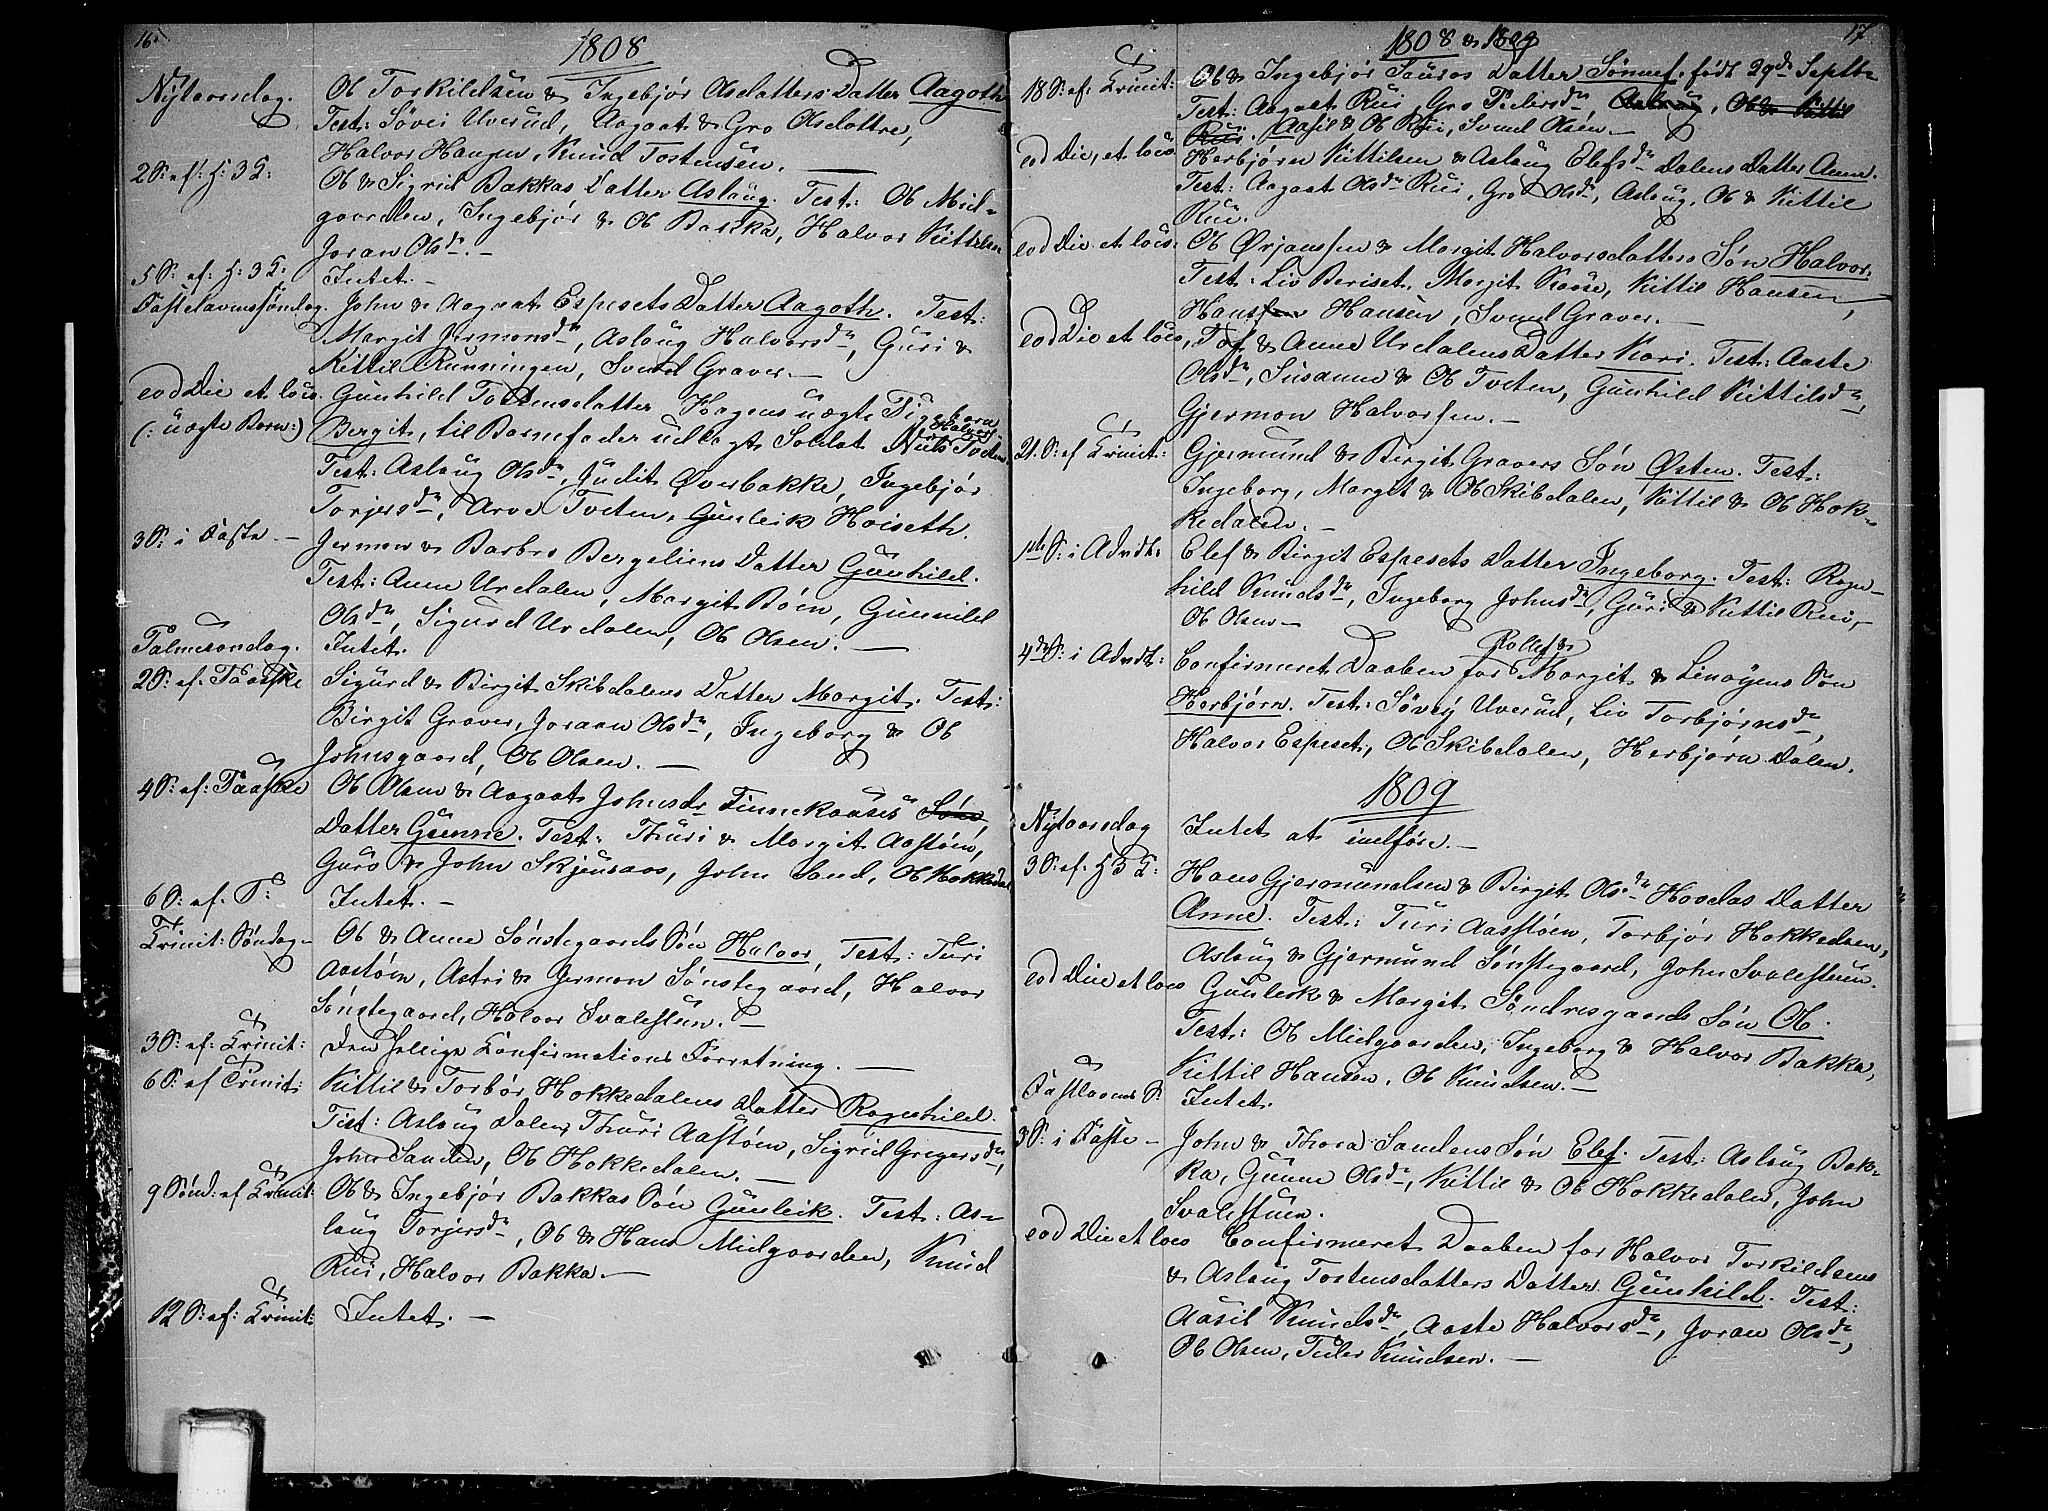 16.
1808
Nytaarsdag. Ob Torkildsen & Ingebjør Asdatters Datter Aagoth
Test: Søvei Uverud, Aagaat & Gro Olsdattre,
Halvor Haugen, Knud Tostensen. —
2 S: ef: H: 3 K: Ob & Sigrid Bakkas Datter Aslaug. Test: Ob Mid-
gaarden, Ingebjør & Ob Bakka, Halvor Kittilsen
Joran Olsdr. —
5 S: ef: H: 3 K: Intet. —
Fastelavnssøndag. John & Aagaat Espesets Datter Aagoth. Test:
Margit Jermonsdr, Aslaug Halvorsdr, Guri &
Kittil Runningen, Svend Graver. —
eod Die et loco. Gunhild Tostensdatter Hagens uægte Pigebarn
(: uægte Barn :) Bergit, til Barnefader udlagt Soldat Niels Halvors. Tveten
Test: Aslaug Olsdr, Judit Øverbakke, Ingebjør
Torjersdr, Arve Tveten, Gunleik Hoiseth.
3 S: i Faste — Jermon & Barbro Bergeliens Datter Gunhild.
Test: Anne Urdalen, Margit Bøen, Gunnild
Olsdr, Sigurd Urdalen, Ob Olsen. —
Palmesøndag. Intet.
2 S. ef. Paaske Sigurd & Birgit Skibdalens Datter Margit. Test:
Birgit Graver, Joraan Olsdr, Ingeborg & Ob
Johnsgaard, Ob Olsen. —
4 S. ef: Paaske Ob Olsen & Aagaat Johnsdr Finnekaases Søn
Datter Gunne. Test: Thuri & Margit Aastøen,
Guro & John Skjeuraas, John Sand, Ob Hokkedal
6 S: ef. P: Intet. —
Trinit: Søndag — Ob & Anne Sønstegaards Søn Halvor, Test: Turi
Aastøen, Astri & Jermon Sønstegaard, Halvor
Sønstegaard, Halvor Svalestuen. —
3 S: ef: Trinit: Den hellige Confirmations Forretning. —
6 S: ef Trinit: Kittil & Torbør Hokkedalens Datter Ragnhild.
Test: Aslaug Dalen, Thuri Aastøen, Sigrid Gregersdr,
John Sanden, Ob Hokkedalen. —
9 Sønd: ef Trinit: Ob & Ingebjør Bakkas Søn Gunleik. Test: As-
laug Torjersdr, Ob & Hans Midgaarden, Knud
Rui, Halvor Bakka. —
12 S: ef: Trinit: Intet. —
17.
1808 & 1809
18 S: ef: Trinit: Ob & Ingebjør Sauros Datter Sønnef. født 29de Septb
Test: Aagaat Rui, Gro Pedersdr Aslaug, Ob & Kittil
Rui. Aasil & Ob Rui, Svend Olsen. —
eod Die, et loco. Herbjørn Kittilsen & Aslaug Elefsdr Dalens Datter Anne.
Test: Aagaat Olsdr Rui, Gro Olsdr, Aslaug, Ob & Kittil
Rui.
eod Die et loco: Ob Ørjanssen & Margit Halvorsdatters Søn Halvor.
Test: Liv Beriset, Margit Kaase, Kittil Hansen,
Hans Hansen, Svend Graver. —
eod Die et loco, Tof & Anne Urdalens Datter Kari. Test: Aaste
Olsdr, Susanne & Ob Tveten, Gunhild Kittilsdr,
Gjermon Halvorsen. —
21. S: ef Trinit: Gjermund & Birgit Gravers Søn Østen. Test:
Ingeborg, Margit & Ob Skibdalen, Kittil & Ob Hok-
kedalen. —
1ste S: i Advdt: Elef & Birgit Espesets Datter Ingeborg. Test: Ragn-
hild Knudsdr, Ingeborg Johnsdr, Guri & Kittil Rui,
Ob Olsen —
4de S: i Advdt: Confirmeret Daaben for Rollef & Margit & Linøyens Søn
Herbjørn. Test: Søvey Uverud, Liv Torbjørnsdr,
Halvor Espeset, Ob Skibdalen, Herbjørn Dalen.
1809
Nytaarsdag Intet at indføre. —
3 S: ef. H 3 K: Hans Gjermundsen & Birgit Olsdr Hovdas Datter
Anne. Test: Turi Aasstøen, Torbjør Hokkedalen,
Aslaug & Gjermund Sønstegaard, John Svalestuen.
eod Die et loco Gunleik & Margit Søndresgaards Søn Ob.
Test: Ob Midgaarden, Ingeborg & Halvor Bakka,
Kittil Hansen, Ob Knudsen. —
Fastlavns S. Intet.
3 S: i Faste — John & Thora Sandens Søn Elef. Test: Aslaug Bak-
ka, Gunne Olsdr, Kittil & Ob Hokkedalen, John
Svalestuen.
eod Die et loco Confirmeret Daaben for Halvor Torkildsens
& Aslaug Tostensdatters Datter Gunhild. Test:
Aasil Knudsdr, Aaste Halvorsdr, Joran Olsdr,
Ob Olsen, Tuler Knudsen. —